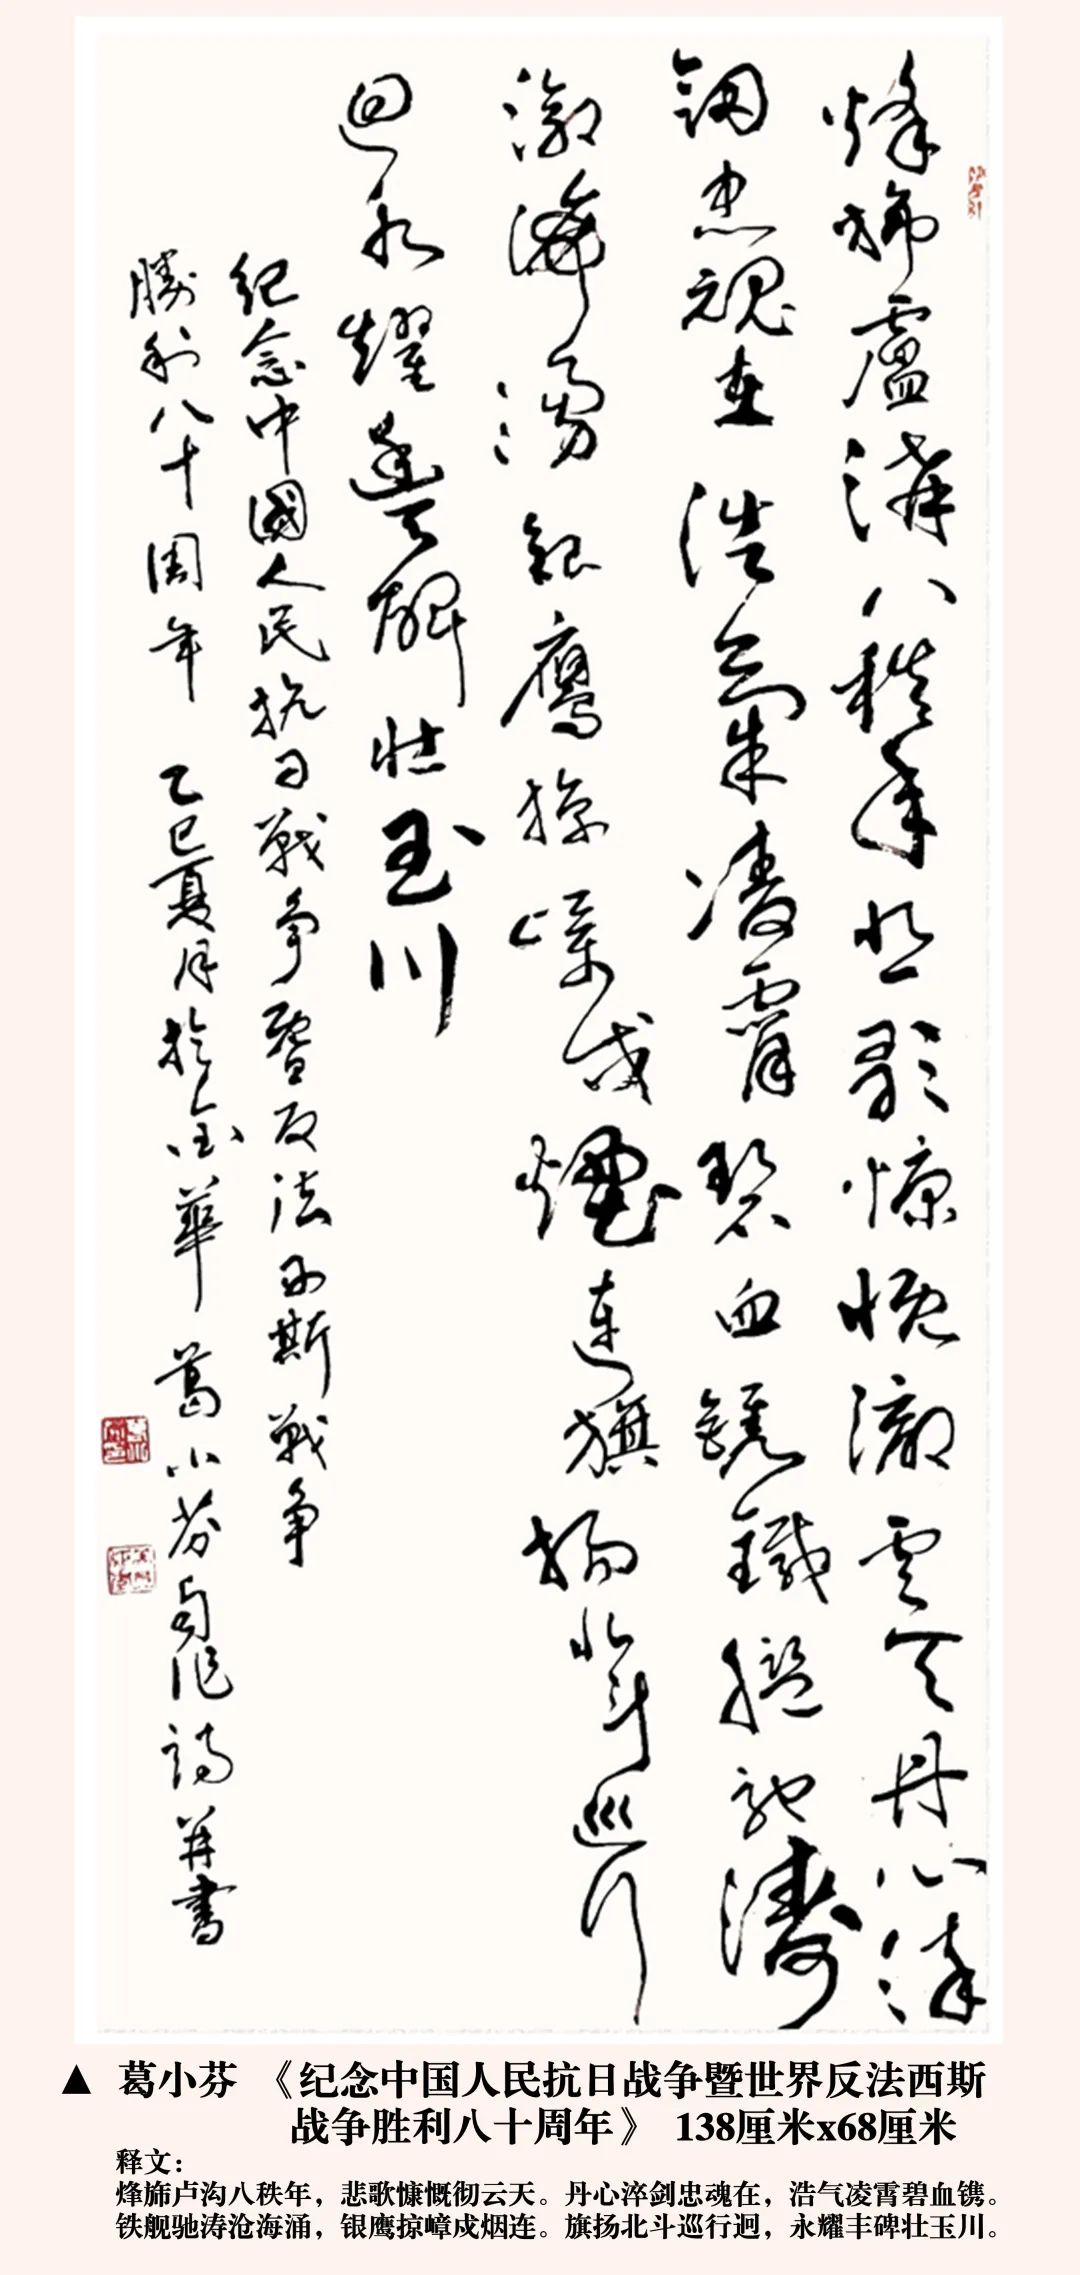 烽旆盧溝八秩年悲歌慷慨澈雲天丹心淬
釼忠魂在浩氣凌霄碧血鐫鐵艦馳濤
澈海湧銀鷹掠嶂戍煙連旗揚北斗巡行
迴永耀豐碑壯玉川
紀念中國人民抗日戰爭暨反法西斯戰爭
勝利八十周年 乙巳夏月於金華 葛小芬自作詩并書
▲ 葛小芬 《纪念中国人民抗日战争暨世界反法西斯
战争胜利八十周年》 138厘米x68厘米
释文：
烽旆卢沟八秩年，悲歌慷慨彻云天。丹心淬剑忠魂在，浩气凌霄碧血镌。
铁舰驰涛沧海涌，银鹰掠嶂戍烟连。旗扬北斗巡行迥，永耀丰碑壮玉川。